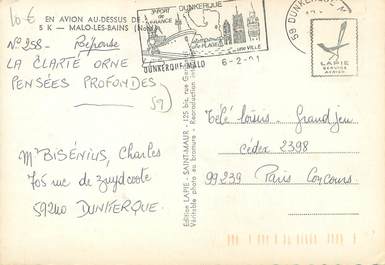 10€
EN AVION AU-DESSUS DE
5 K — MALO-LES-BAINS (Nord)
N° 258 - Réponse
LA CLARTE ORNE
PENSÉES PROFONDES
59
Mr BISÉNIUS, Charles
705 rue de Zuydcoote
59240 DUNKERQUE
Edition LAPIE - SAINT-MAUR - 125 bis, rue
Véritable photo au bromure - Reproduction
3e PORT
de FRANCE
DUNKERQUE
PLAGE
une VILLE
DUNKERQUE MALO
6-2-
59 DUNKERQUE
LAPIE
SERVICE
AERIEN
Télé loisirs - Grand jeu
Cédex 2398
99239 Paris Concours